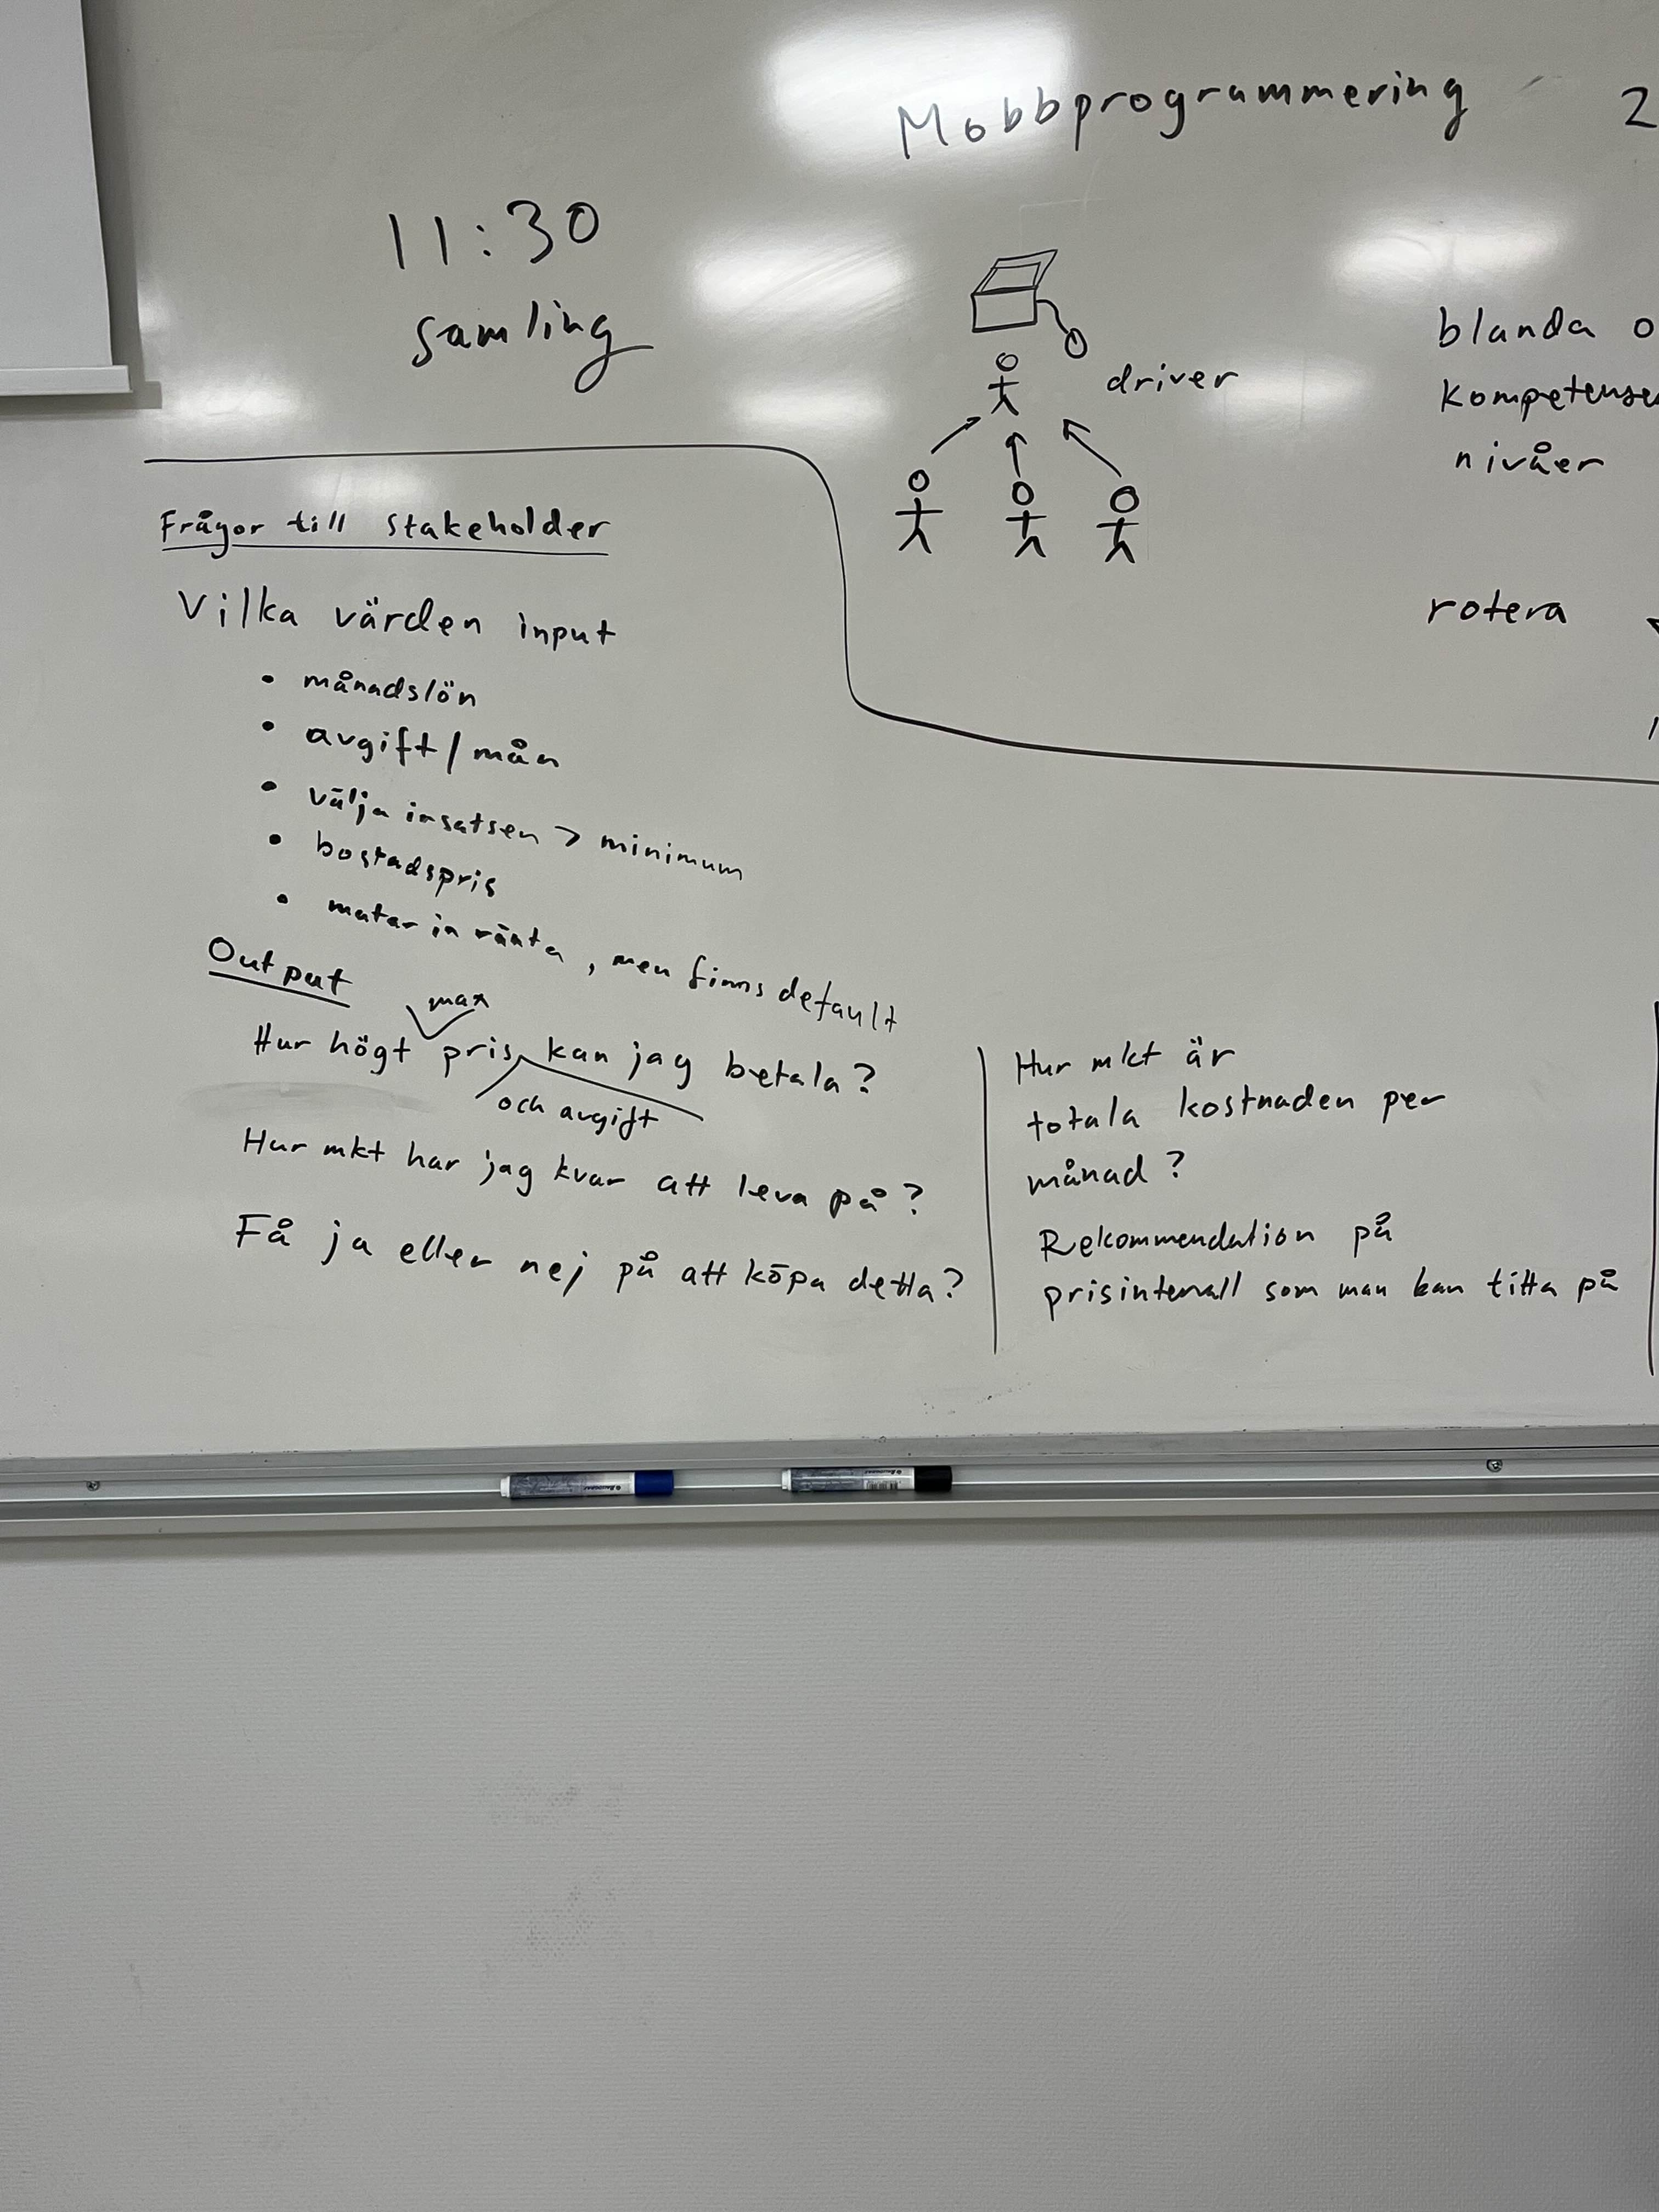 Mobbprogrammering 2
11:30
samling
driver
blanda o
kompetense
nivåer
rotera
Frågor till stakeholder
Vilka värden input
• månadslön
• avgift/mån
• välja insatsen > minimum
• bostadspris
• matar in ränta, men finns default
Output
max
Hur högt pris kan jag betala?
och avgift
Hur mkt har jag kvar att leva på?
Få ja eller nej på att köpa detta?
Hur mkt är
totala kostnaden per
månad?
Rekommendation på
prisintervall som man kan titta på